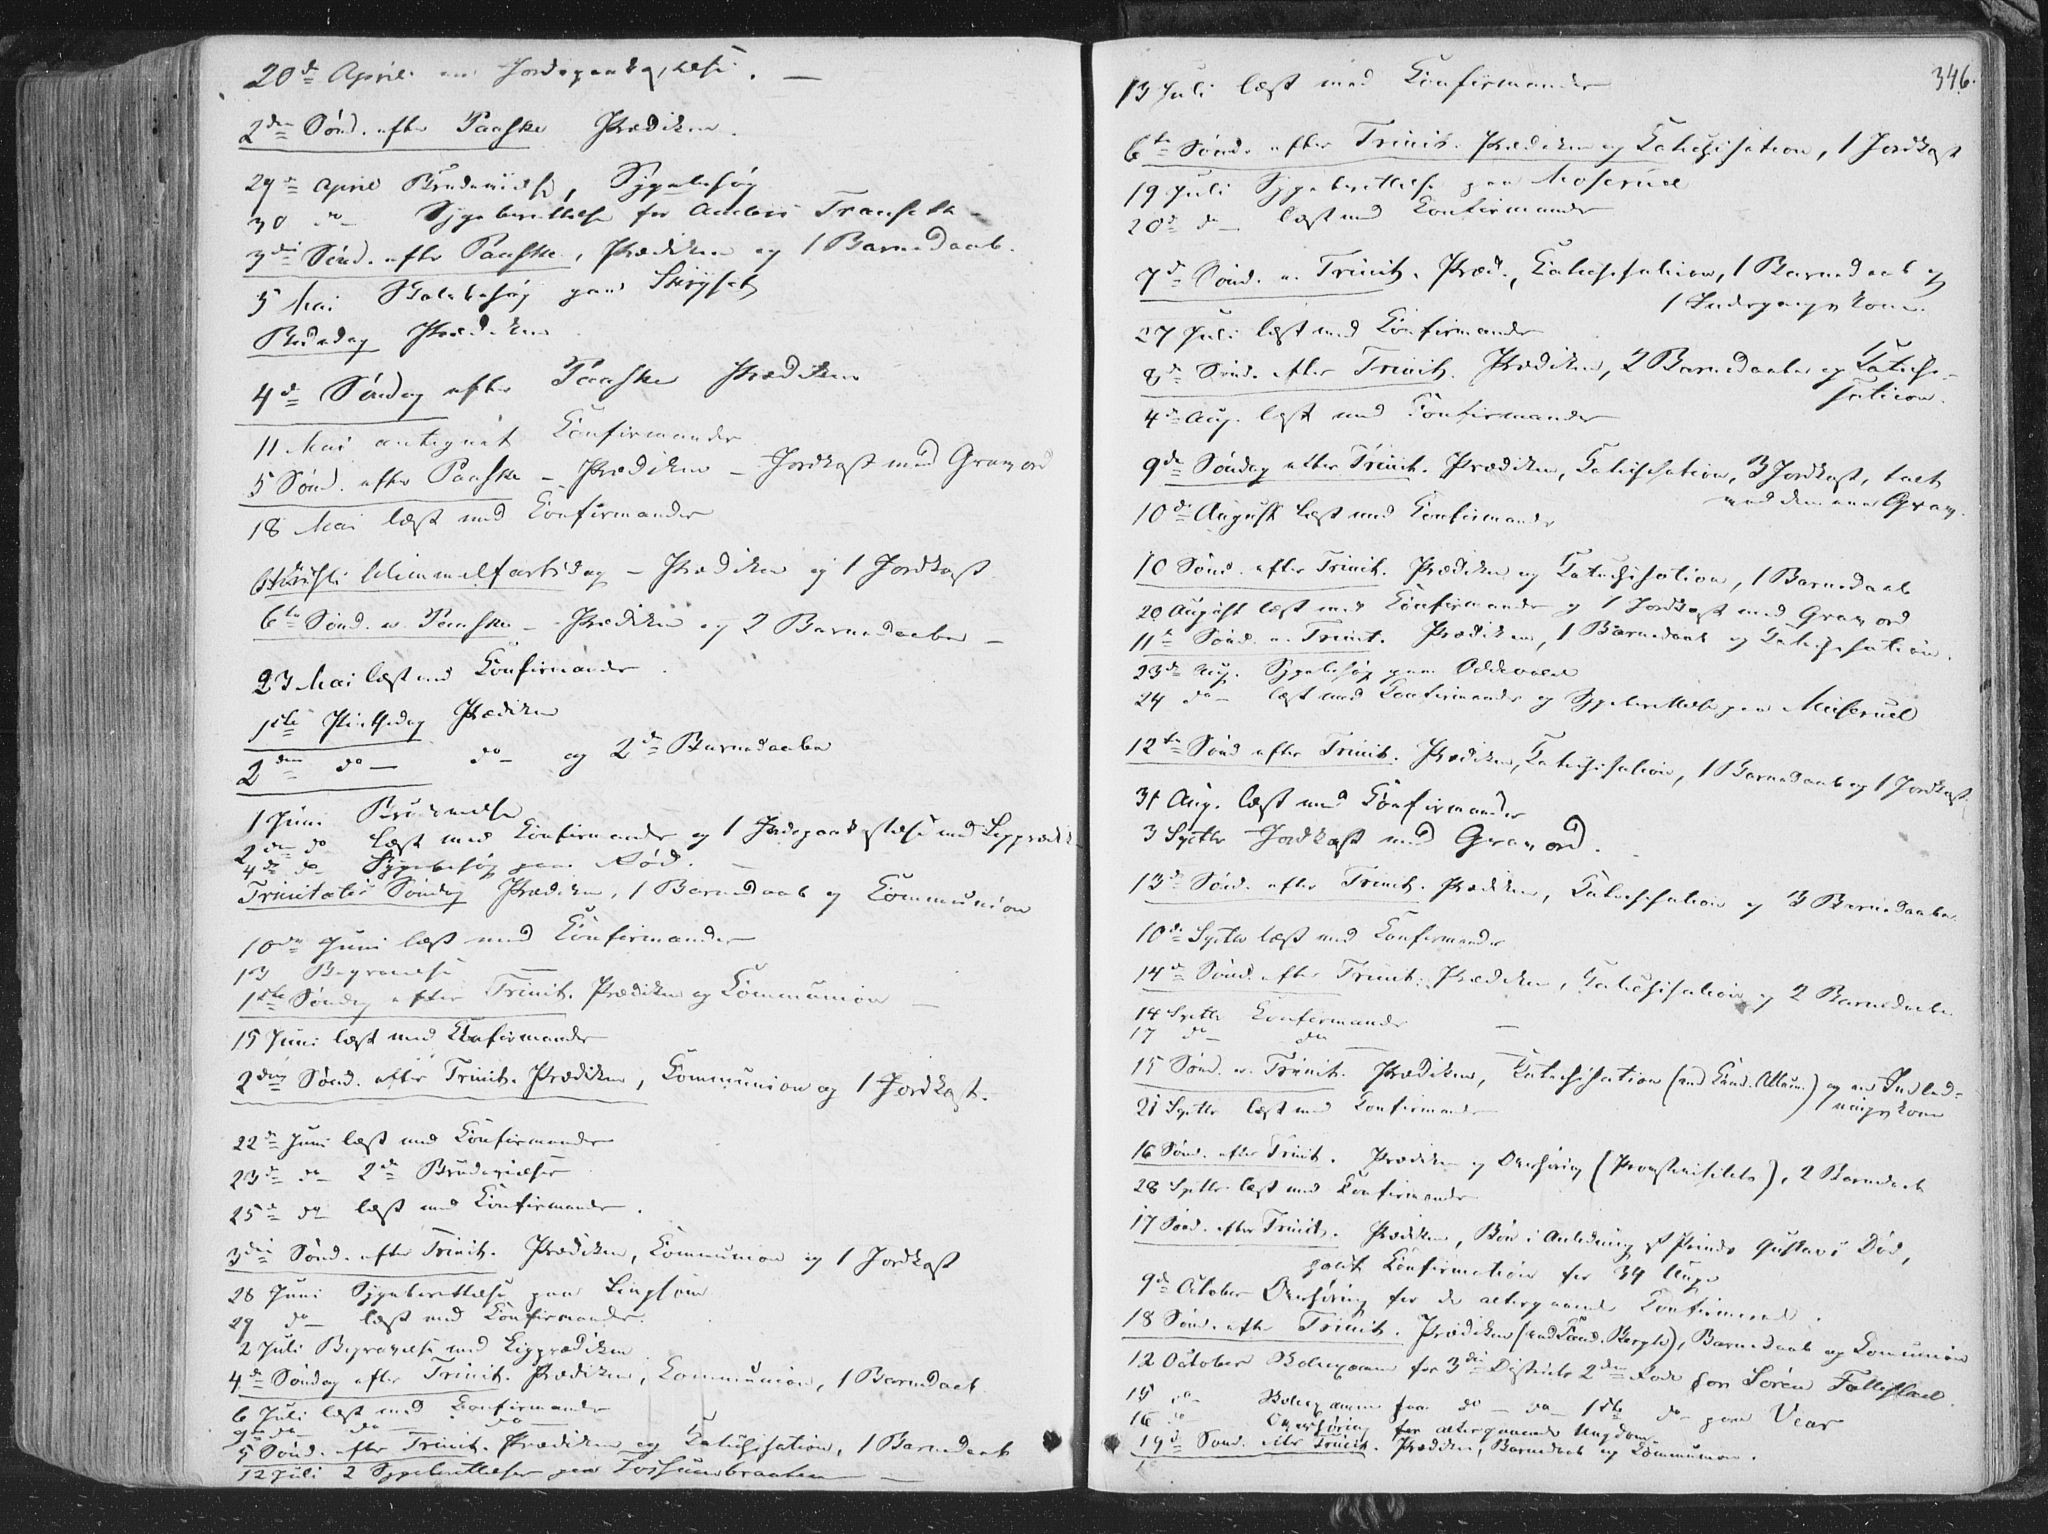 20de April en Jordspaakastelse. —
2den Sønd. efter Paaske Prædiken.
29de April Brudevielse, Sygebesøg
30 do — Sygeberettelse for Anders Transeth
3die Sønd. efter Paaske, Prædiken og 1 Barnedaab.
5 Mai Skolebesøg paa
Bededag Prædiken
4de Søndag efter Paaske Prædiken
11 Mai antegnet Confirmander
5 Sønd. efter Paaske — Prædiken — Jordkast med Gravord
18 Mai læst med Confirmander
Christi Himmelfartsdag — Prædiken og 1 Jordkast
6te Sønd. e. Paaske — Prædiken og 2 Barnedaaber —
23 Mai læst med Confirmander.
1ste Pintsedag Prædiken
2den do — do — og 2de Barnedaaber
1 Juni Brudevielse
2den do læst med Confirmander og 1 Jordspaakastelse med Ligprædik
4de do Sygebesøg paa Rød. —
Trinitatis Søndag Prædiken, 1 Barnedaab og Communion
10de Juni læst med Confirmander
13 Begravelse —
1ste Søndag efter Trinit. Prædiken og Communion —
15 Juni læst med Confirmander
2den Sønd. efter Trinit. Prædiken, Communion og 1 Jordkast.
22de Juni læst med Confirmander
23de do 2de Brudevielser
25de do læst med Confirmander.
3die Sønd. efter Trinit. Prædiken, Communion og 1 Jordkast
28 Juni Sygeberettelse paa
29 do — læst med Confirmander.
2 Juli Begravelse med Ligprædiken
4de Søndag efter Trinit. Prædiken, Communion, 1 Barnedaab
6 Juli læst med Confirmander
9de do — do — do —
5 Sønd. efter Trinit. Prædiken og Catechisation, 1 Barnedaab
12 Juli 2 Sygeberettelser paa Fossumbraaten —
346.
13 Juli læst med Confirmander
6te Sønd. efter Trinit. Prædiken og Catechisation, 1 Jordkast
19 Juli Sygeberettelse paa Moserud
20de do — læst med Confirmander
7de Sønd. e. Trinit. Præd., Catechisation, 1 Barnedaab og
1 Indgangskone.
27 Juli læst med Confirmander
8de Sønd. efter Trinit. Prædiken, 2 Barnedaaber og Cateche-
sation.
4de Aug. læst med Confirmander
9de Søndag efter Trinit. Prædiken, Catechisation, 3 Jordkast, talt
ved den ene Grav.
10de August læst med Confirmander
10 Sønd. efter Trinit. Prædiken og Catechisation, 1 Barnedaab
20 August læst med Confirmander og 1 Jordkast med Gravord
11te Sønd. e. Trinit. Prædiken, 1 Barnedaab og Catechisation.
23de Aug. Sygebesøg paa Oddevald
24 do — læst med Confirmander og Sygeberettelse paa Miserud
12te Sønd. efter Trinit. Prædiken, Catechisation, 1 Barnedaab og 1 Jordkast
31 Aug. læst med Confirmander
3 Septbr Jordkast med Gravord.
13de Sønd. efter Trinit. Prædiken, Catechisation og 3 Barnedaaber
10de Septbr læst med Confirmander
14de Sønd. efter Trinit. Prædiken, Catechisation og 2 Barnedaaber
14 Septbr Confirmander —
17 do — do
15 Sønd. e. Trinit. Prædiken, Catechisation (ved Cand. Allum.) og en Indled-
ningskone
21 Septbr læst med Confirmander
16 Sønd. efter Trinit. Prædiken og Overhøring (Provstevisitats), 2 Barnedaab
28 Septbr læst med Confirmander
17 Sønd. efter Trinit. Prædiken, Bøn i Anledning af Prinds Gustavs Død,
holdt Confirmation for 34 Unge
9de October Overhøring for de altergaaende Confirmered.
18 Sønd. efter Trinit. Prædiken (ved Cand. Bergh), Barnedaab og Comunion
12 October Skoleexamen for 3die Districts 2den Rode hos Søren Fallestad.
15 do — Skoleexamen for do — do — 1ste do — paa Vear
16 do — Overhøring for altergaaende Ungdom
19de Sønd. efter Trinit. Prædiken, Barnedaab og Communion.